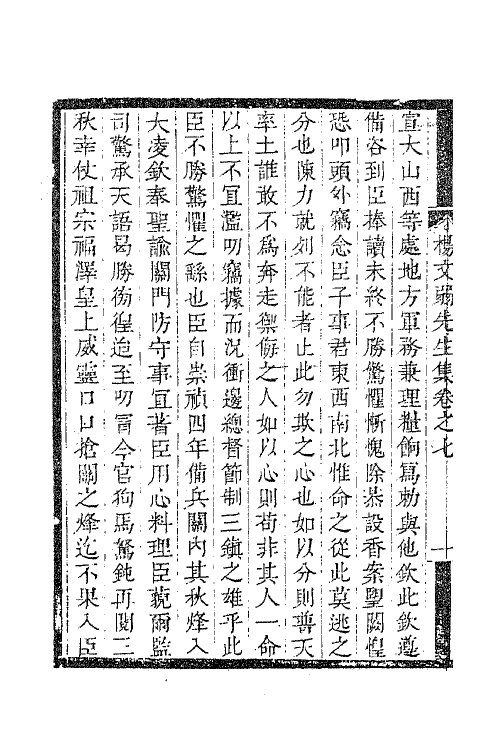 楊文弱先生集卷之七
一
宣大山西等處地方軍務兼理糧餉寫勅與他欽此欽遵
備咨到臣捧讀未終不勝驚懼慚愧除恭設香案望闕惶
恐叩頭外竊念臣子事君東西南北惟命之從此莫逃之
分也陳力就列不能者止此勿欺之心也如以分則普天
率土誰敢不爲奔走禦侮之人如以心則苟非其人一命
以上不宜濫叨竊據而況衝邊總督節制三鎮之雄乎此
臣不勝驚懼之繇也臣自崇禎四年備兵關內其秋烽入
大凌欽奉聖諭關門防守事宜著臣用心料理臣藐爾監
司驚承天語曷勝徬徨迨至叨冒今官狗馬駑鈍再閱三
秋幸仗祖宗福澤皇上威靈口口搶關之烽迄不果入臣